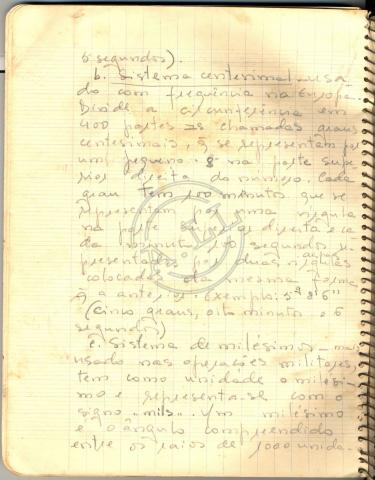 6 segundos).
b. Sistema centesimal - usa-
do com frequência na Europa.
Divide a circunferência em
400 partes chamadas graus
centesimais, q se representam por
um pequeno g na parte supe-
rior direita do numero. Cada
grau tem 100 minutos que se
representam por uma
na parte superior direita e ca-
da minuto 100 segundos re-
presentados por duas
colocadas da mesma forma
a anterior. Exemplo: 5g 8' 6"
(cinco graus, oito minutos e 6
segundos)
c. Sistema de milésimos - mais
usado nas operações militares,
tem como unidade o milési-
mo e representa-se com o
signo "mils". Um milésimo
é o ângulo compreendido
entre os raios de 1000 unida-